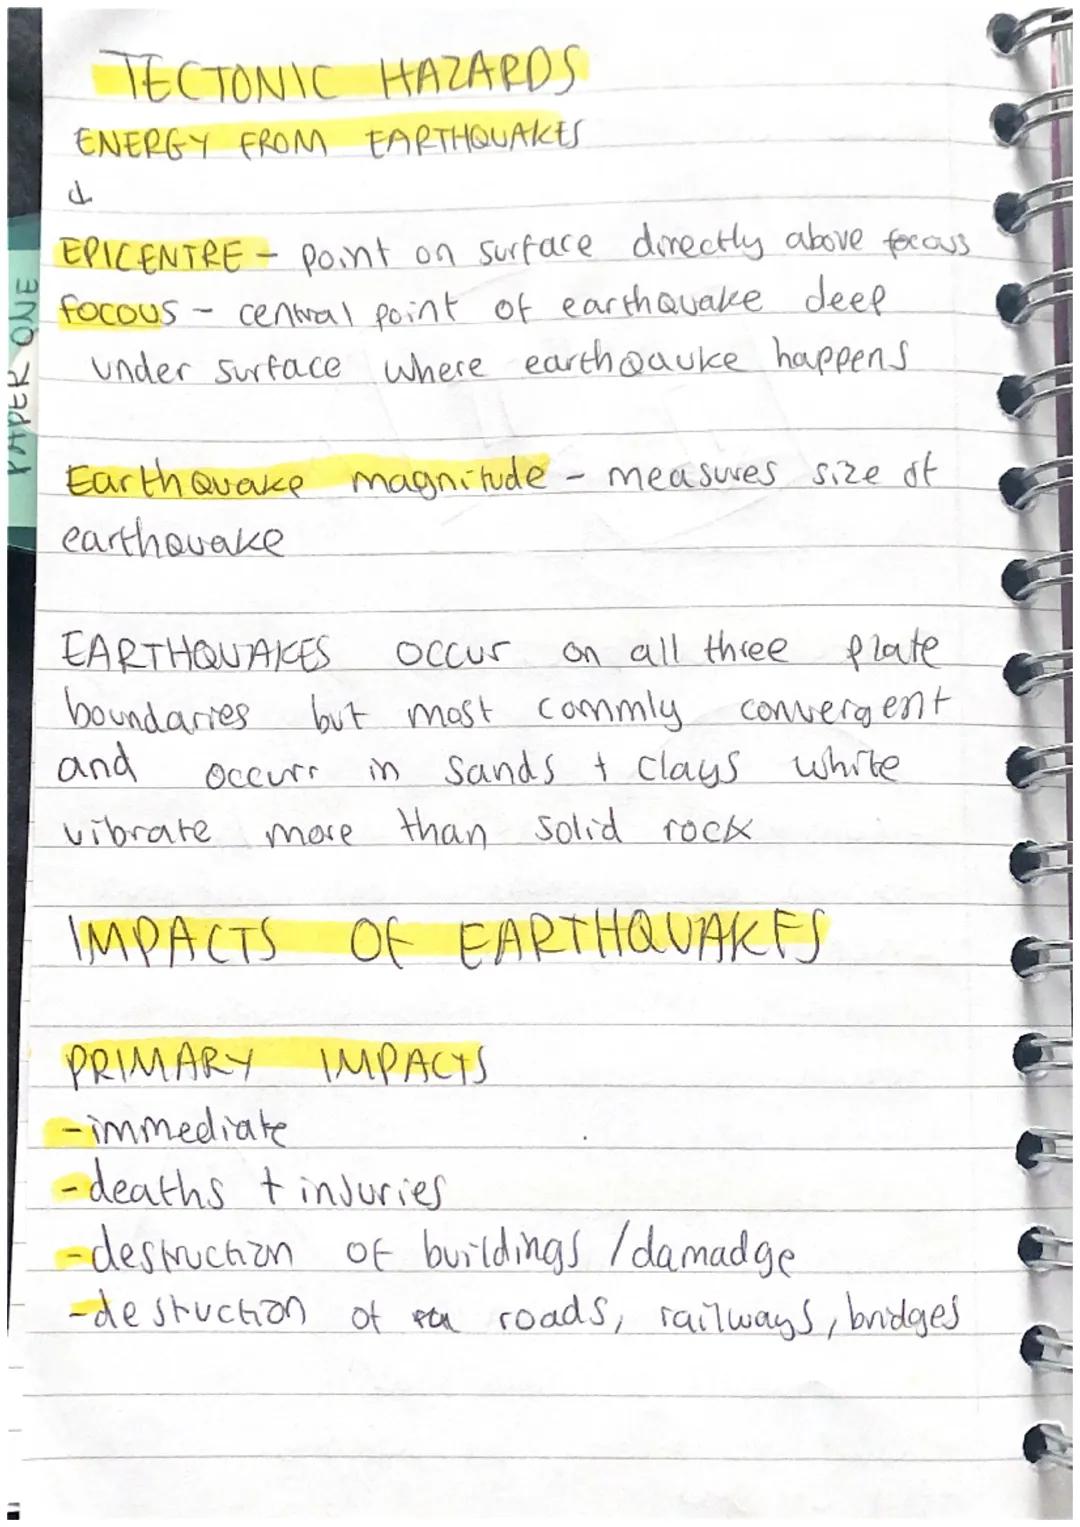 TECTONIC HAZARDS
ENERGY FROM EARTHQUAKES
↓
EPICENTRE - point on surface directly above focous
focous - central point of earthquake deep
under surface where earthqauke happens
PAPER ONE
Earthquake magnitude - measures size of
earthquake
EARTHQUAKES occur on all three plate
boundaries but most commly convergent
and occurr in sands + clays white
vibrate more than solid rock
IMPACTS OF EARTHQUAKES
PRIMARY IMPACTS
-immediate
-deaths + injuries
-destruction of buildings / damadge
-destruction of roads, railways, bridges